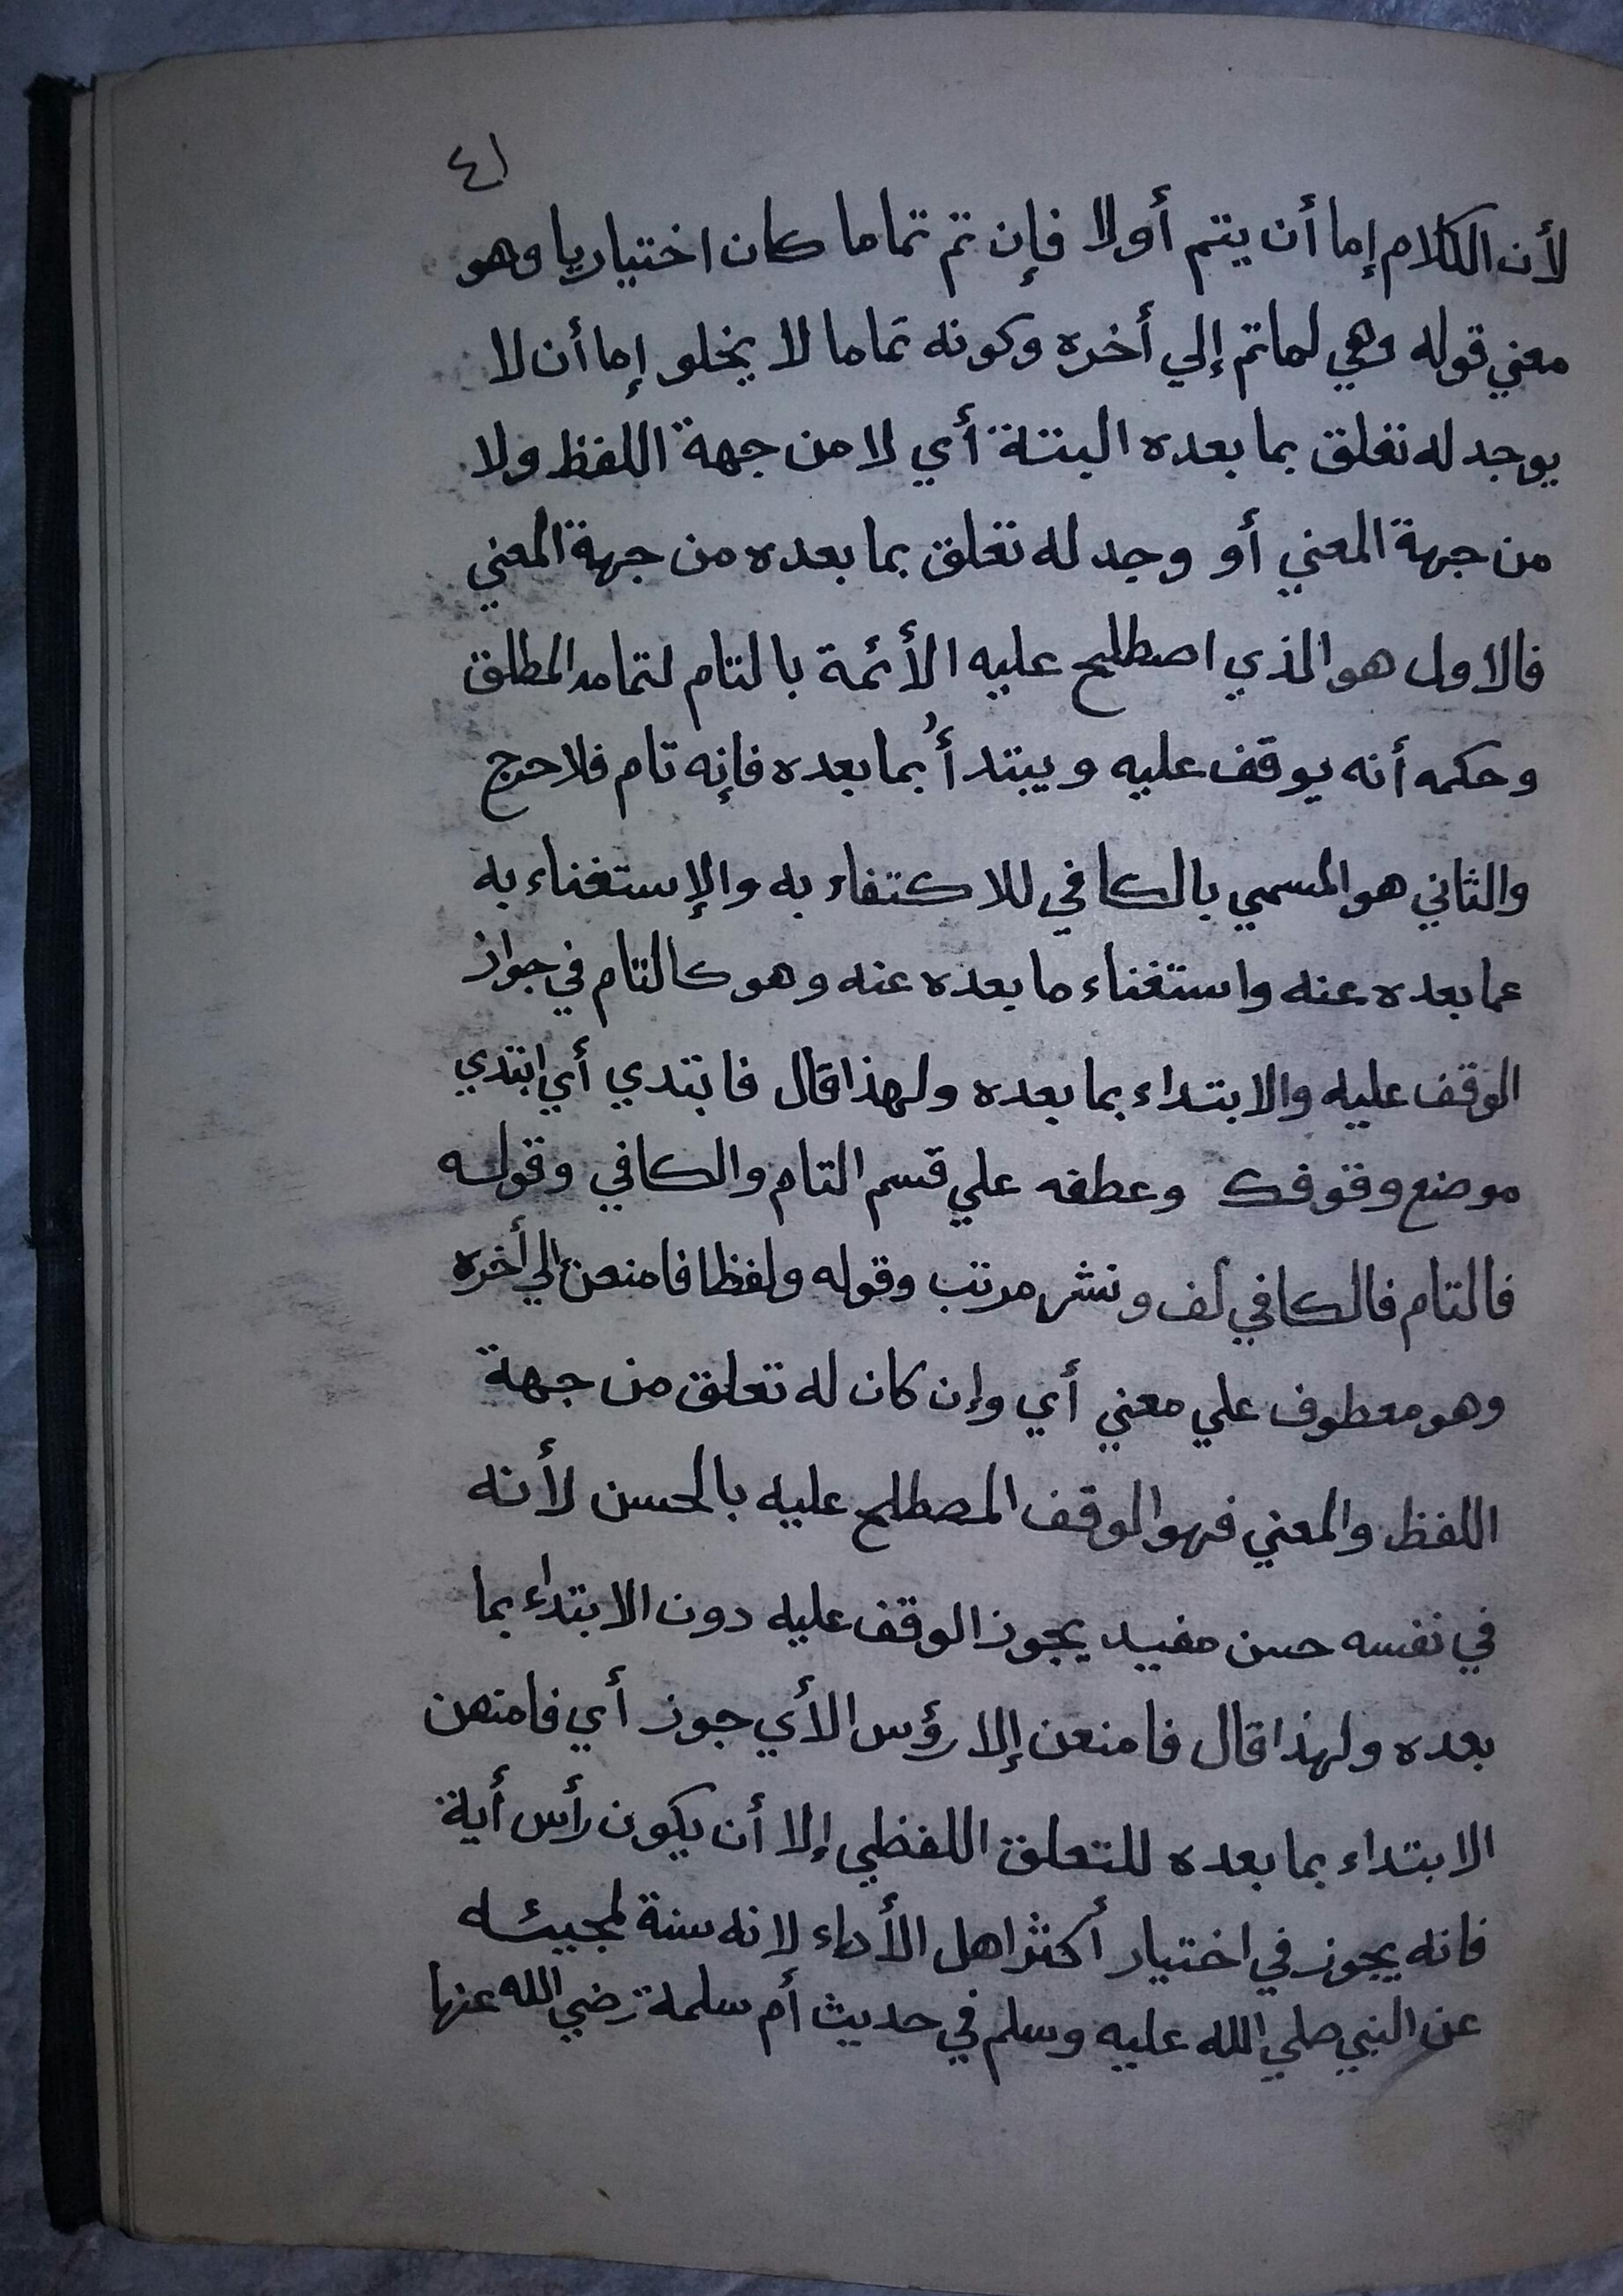 ٤١
لأن الكلام إما أن يتم أو لا فإن تم تماما كان اختياريا وهو
معني قوله وهي لما تم إلي أخره وكونه تماما لا يخلو إما أن لا
يوجد له تعلق بما بعده البتة أي لا من جهة اللفظ ولا
من جهة المعني أو وجد له تعلق بما بعده من جهة المعني
فالاول هو الذي اصطلح عليه الأئمة بالتام لتمامه المطلق
وحكمه أنه يوقف عليه ويبتدأُ بما بعده فإنه تام فلا حرج
والثاني هو المسمي بالكافي للاكتفاء به والإستغناء به
عما بعده عنه واستغناء ما بعده عنه وهو كالتام في جواز
الوقف عليه والابتداء بما بعده ولهذا قال فابتدي أي ابتدي
موضع وقوفك وعطفه علي قسم التام والكافي وقوله
فالتام فالكافي لف ونشر مرتب وقوله ولفظا فامنعن إلي أخره
وهو معطوف علي معني أي وإن كان له تعلق من جهة
اللفظ والمعني فهو الوقف المصطلح عليه بالحسن لأنه
في نفسه حسن مفيد يجوز الوقف عليه دون الابتداء بما
بعده ولهذا قال فامنعن إلا رؤس الأي جوز أي فامنعن
الابتداء بما بعده للتعلق اللفظي إلا أن يكون رأس أية
فانه يجوز في اختيار أكثر اهل الأداء لانه سنة لمجيئه
عن النبي صلي الله عليه وسلم في حديث أم سلمة رضي الله عنها